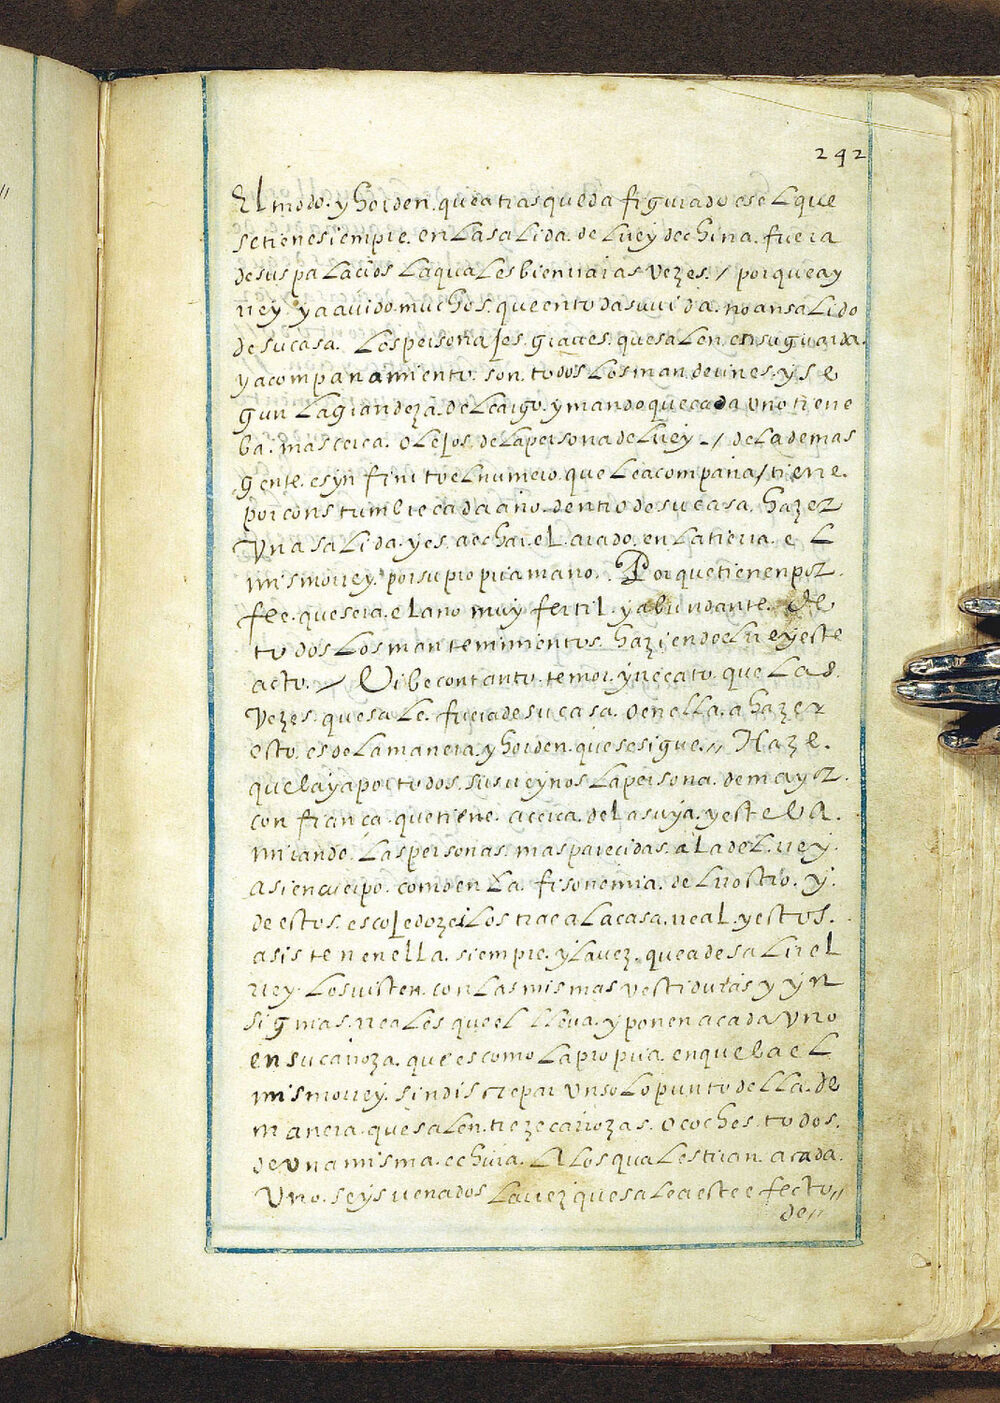 242
El modo. y horden. que atras queda figurado es el que
se tiene siempre. en la salida. del rrey de china. fuera
de sus palacios la qual es bien rraras vezes. / porque ay
rrey. y a auido. muchos. que en toda su uida. no an salido
de su casa. Los personajes. graues. que salen. en su guarda.
y acompañamiento. son. todos los mandarines. y se
gun la grandeza. del cargo. y mando que cada uno tiene
ba. mas cerca. o lejos. de la persona del rrey. / de la demas
gente. es ynfinito el numero. que le acompaña / tiene.
por constumbre cada año. dentro de su casa. hazer
una salida. y es. a echar. el. arado. en la tierra. el
mismo rrey. por su propria mano. Porque tienen por
fee. que sera. el año muy fertil. y abundante. De
todos los mantenimientos. haziendo el rrey este
acto. / Vibe con tanto. temor. y rrecato. que las
vezes. que sale. fuera de su casa. o en ella. a hazer
esto. es de la manera. y horden. que se sigue. // Haze.
que baya por todos. sus rreynos la persona. de mayor
confiança. que tiene. acerca. de la suya. y este ba.
mirando. las personas. mas parecidas. a la del. rrey.
asi en cuerpo. como en la. fisonomia. del rrostro. y.
de estos. escoje doze i los trae a la casa. rreal. y estos.
asisten en ella. siempre. y la uez. que a de salir el
rrey. los visten. con las mismas vestiduras y yn
signias. rreales que el lleva. y ponen a cada uno
en su carroza. que es como la propria. en que ba el
mismo rrey. sin discrepar un solo punto della. de
manera. que salen. treze carrozas. o coches. todos.
de una misma. echura. A los quales tiran. a cada.
uno. seys uenados la uez que sale a este efecto //
de //